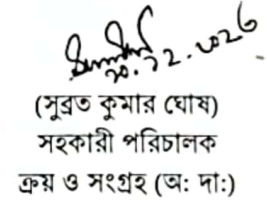 ২০.১২.২০২৩
(সুব্রত কুমার ঘোষ)
সহকারী পরিচালক
ক্রয় ও সংগ্রহ (অ: দা:)